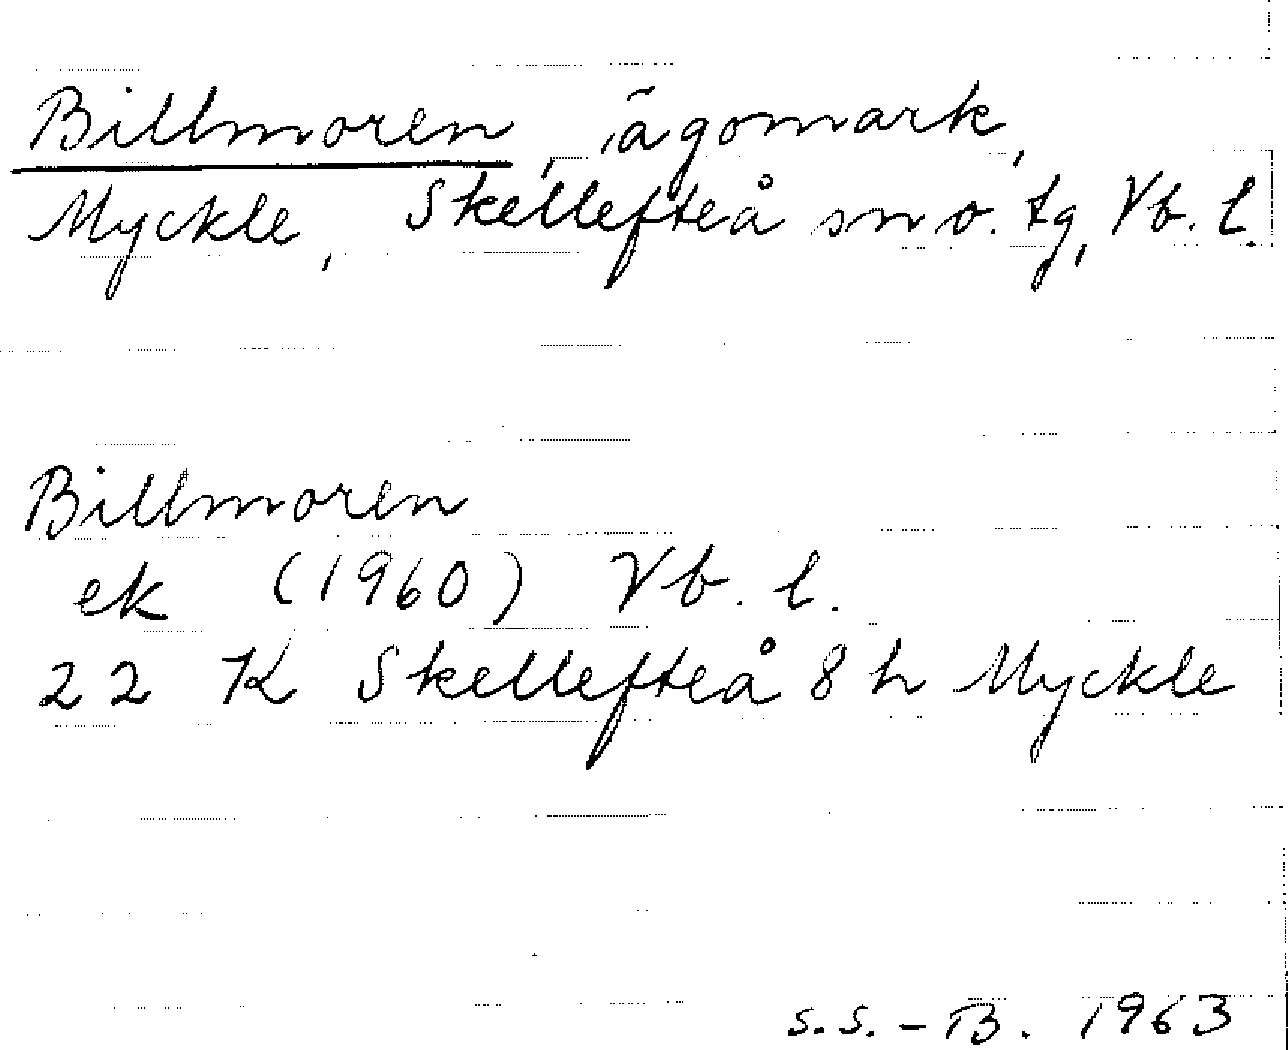 Billmoren, ägomark,
Myckle, Skellefteå sn o. tg, Vb. l.
Billmoren
ek (1960) Vb. l.
22 K Skellefteå 8 h Myckle
S.S.-B. 1963